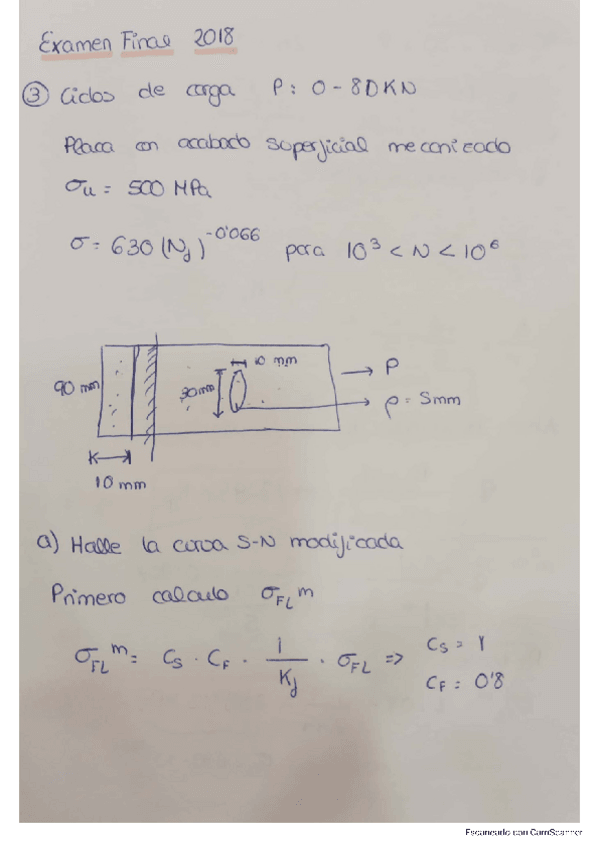 Examen Final 2018
③ Ciclos de carga P: 0 - 80KN
Placa con acabado superficial mecanizado
σu = 500 MPa
σ = 630 (Nf)^-0'066 para 10³ < N < 10⁶
10 mm
P
90 mm
30 mm
ρ = 5mm
10 mm
a) Halle la curva S-N modificada
Primero calculo σFL^m
σFL^m = Cs · CF · 1/Kf · σFL => Cs = 1
CF = 0'8
Escaneado con CamScanner